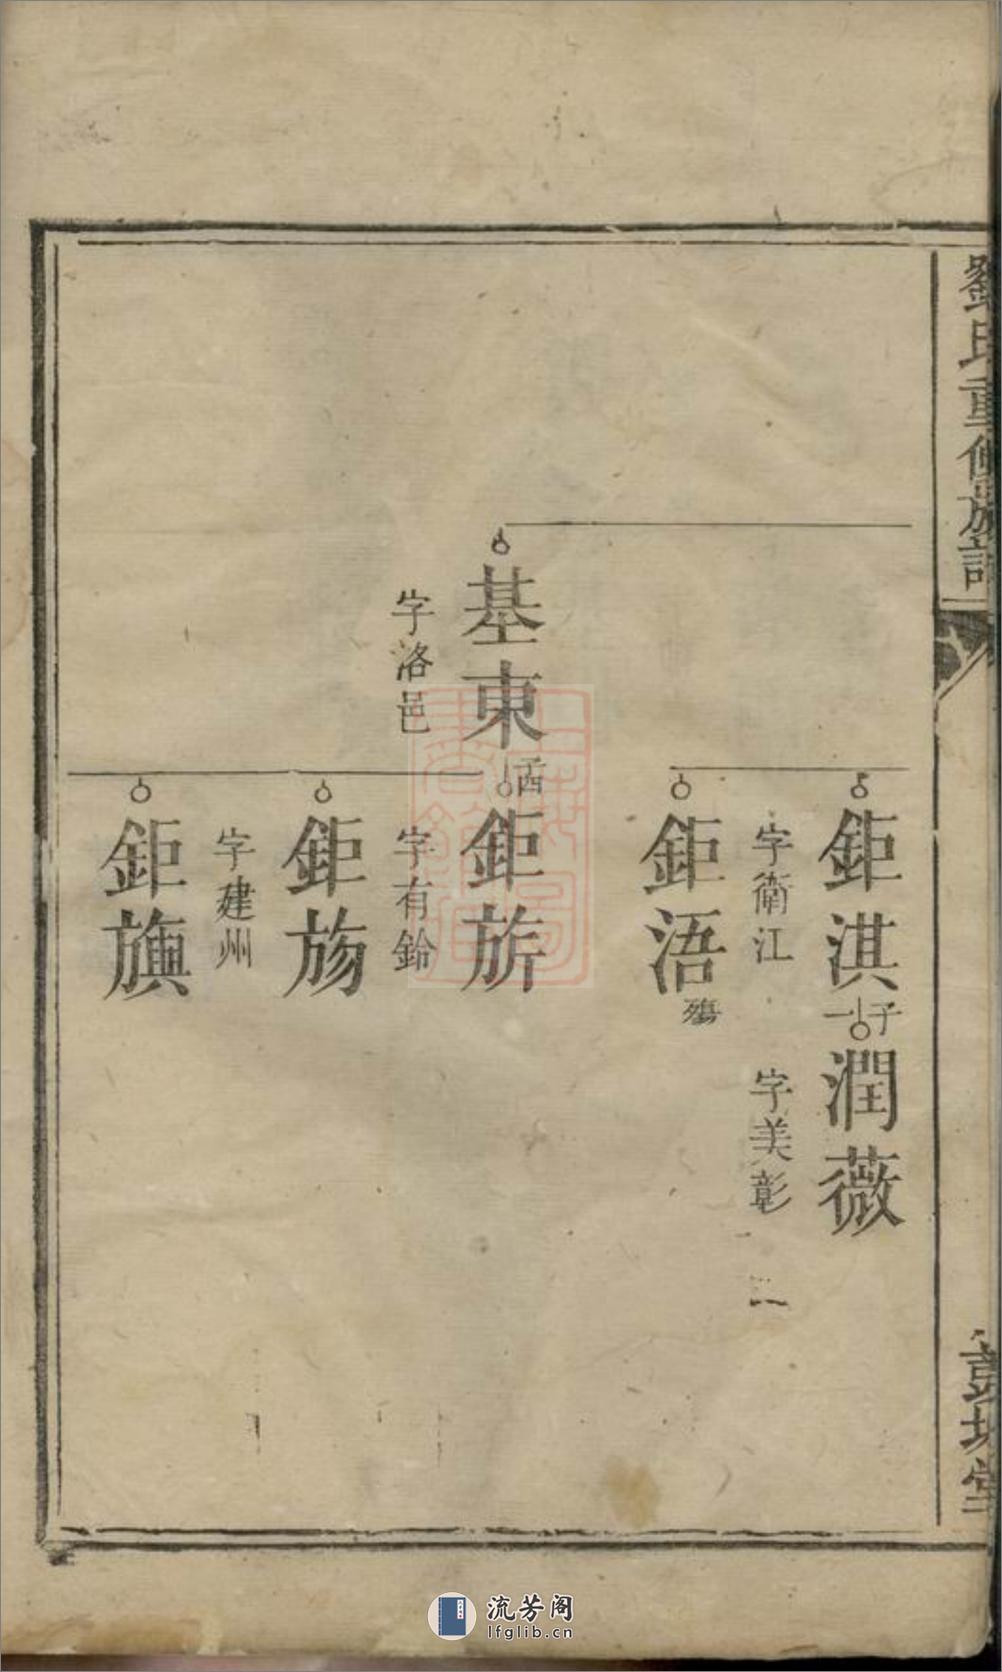 劉氏重修族譜
鉅淇
子一
潤薇
字衛江
字美彰
鉅浯
殤
基東
子四
鉅旂
字洛邑
字有鈴
鉅旸
字建州
鉅旟
彭城堂
流芳阁
lfglib.cn